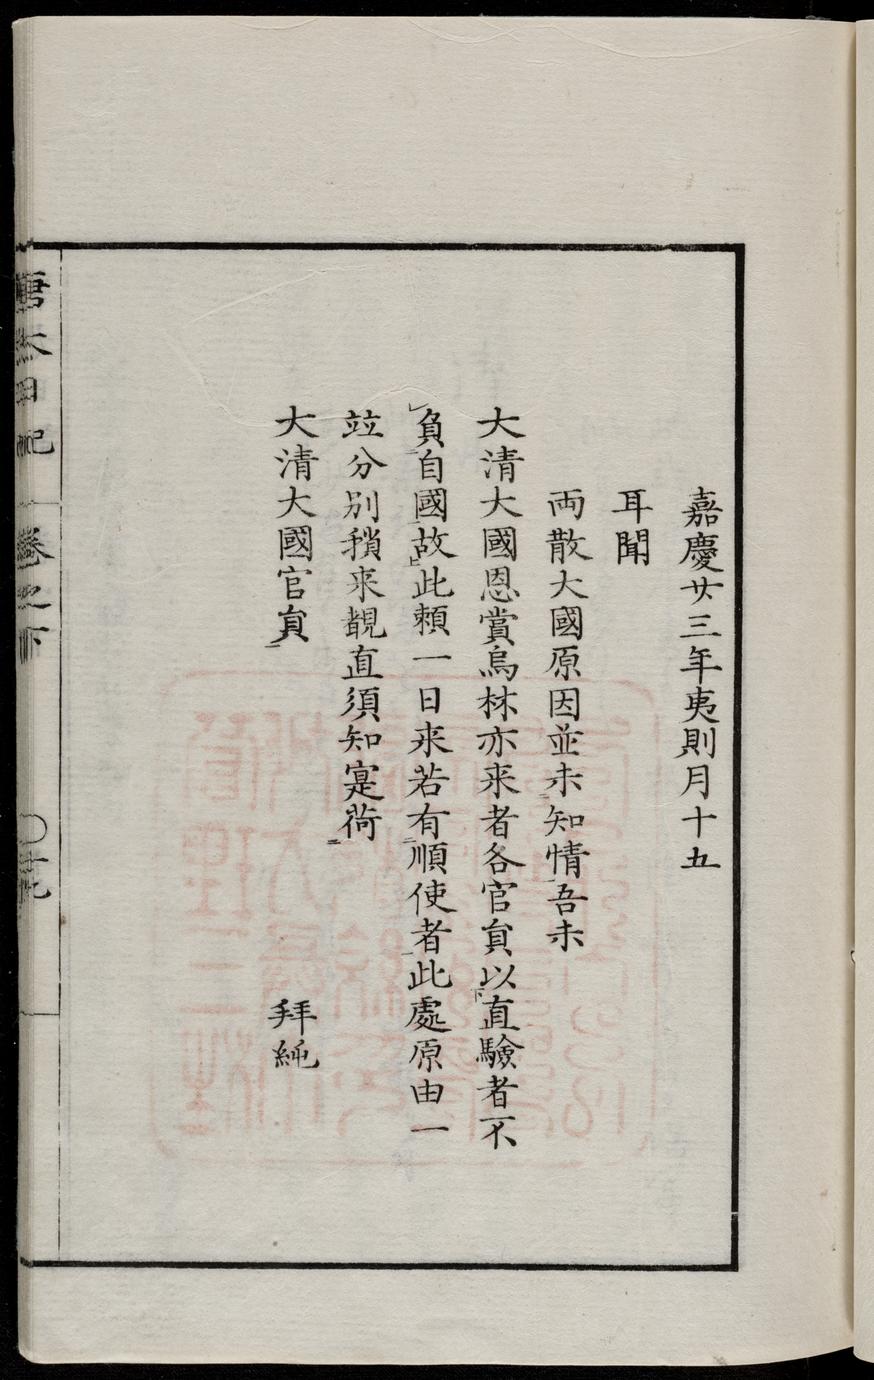 嘉慶廿三年夷則月十五
耳聞
両散大國原因並未知情吾未
大清大國恩賞烏林亦来者各官負以直驗者不
負自國故此頼一日来若有順使者此處原由一
竝分别稍来覩直須知寔荷
大清大國官負
拜
唐太日記
卷之下